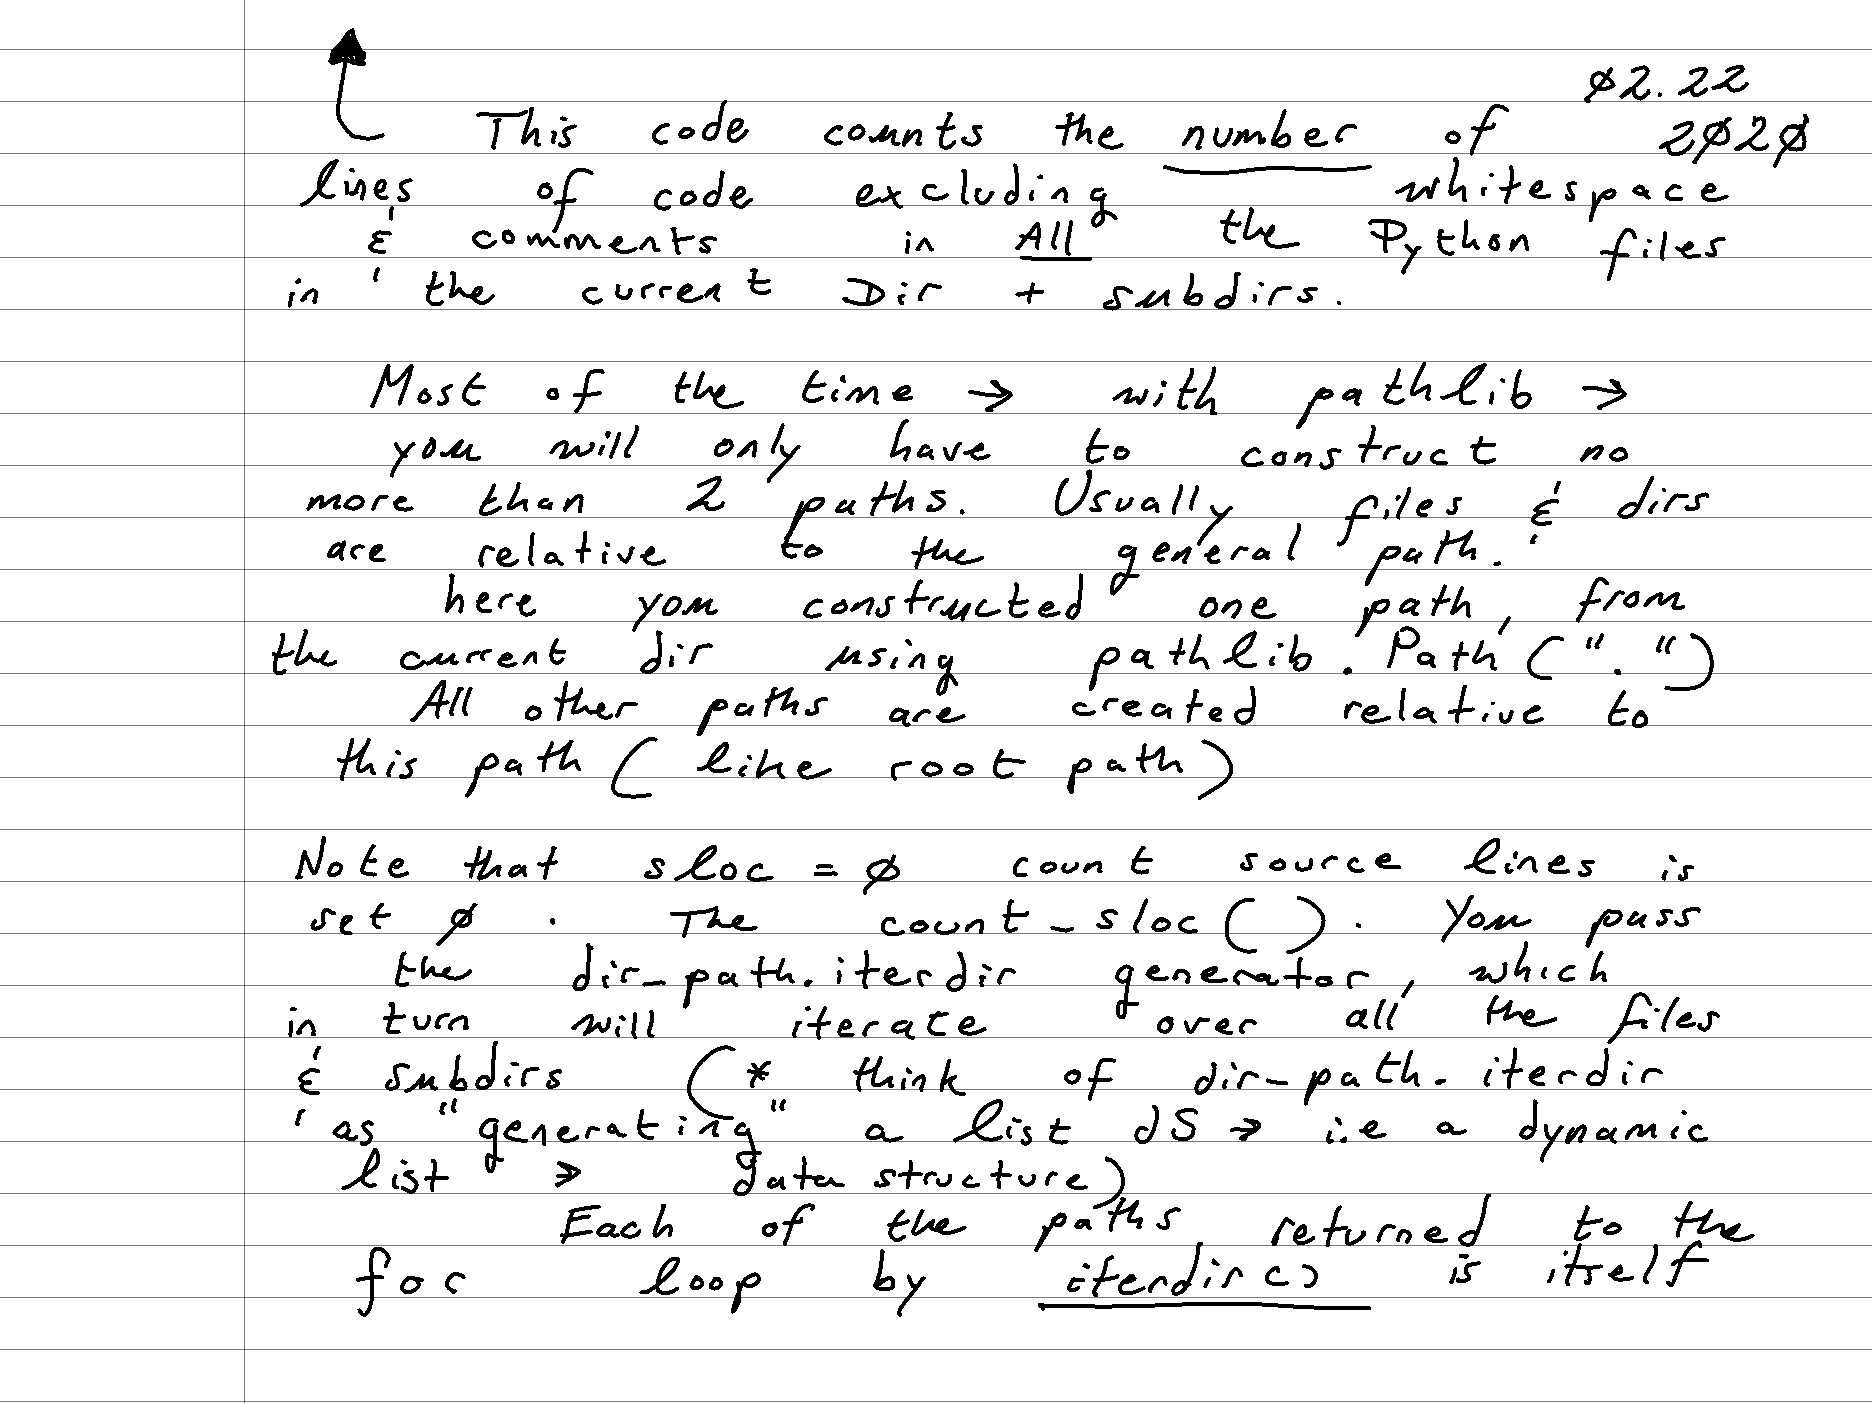 02.22
This code counts the number of 2020
lines of code excluding whitespace
& comments in All the Python files
in the current Dir + subdirs.
Most of the time → with pathlib →
you will only have to construct no
more than 2 paths. Usually files & dirs
are relative to the general path.
here you constructed one path, from
the current dir using pathlib.Path(".")
All other paths are created relative to
this path ( like root path )
Note that sloc = 0 count source lines is
set 0 . The count_sloc( ) . You pass
the dir_path.iterdir generator, which
in turn will iterate over all the files
& subdirs (* think of dir_path.iterdir
as "generating" a list dS → i.e a dynamic
list → data structure)
Each of the paths returned to the
for loop by iterdir() is itself